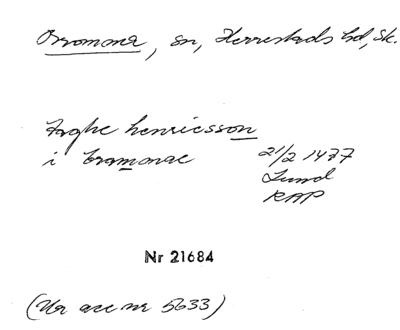 Bromma, sn, Herrestads hd, Sk.
Taghe henricsson
i bramonae
21/2 1477
Lund
RAP
Nr 21684
(Ur acc nr 5633)